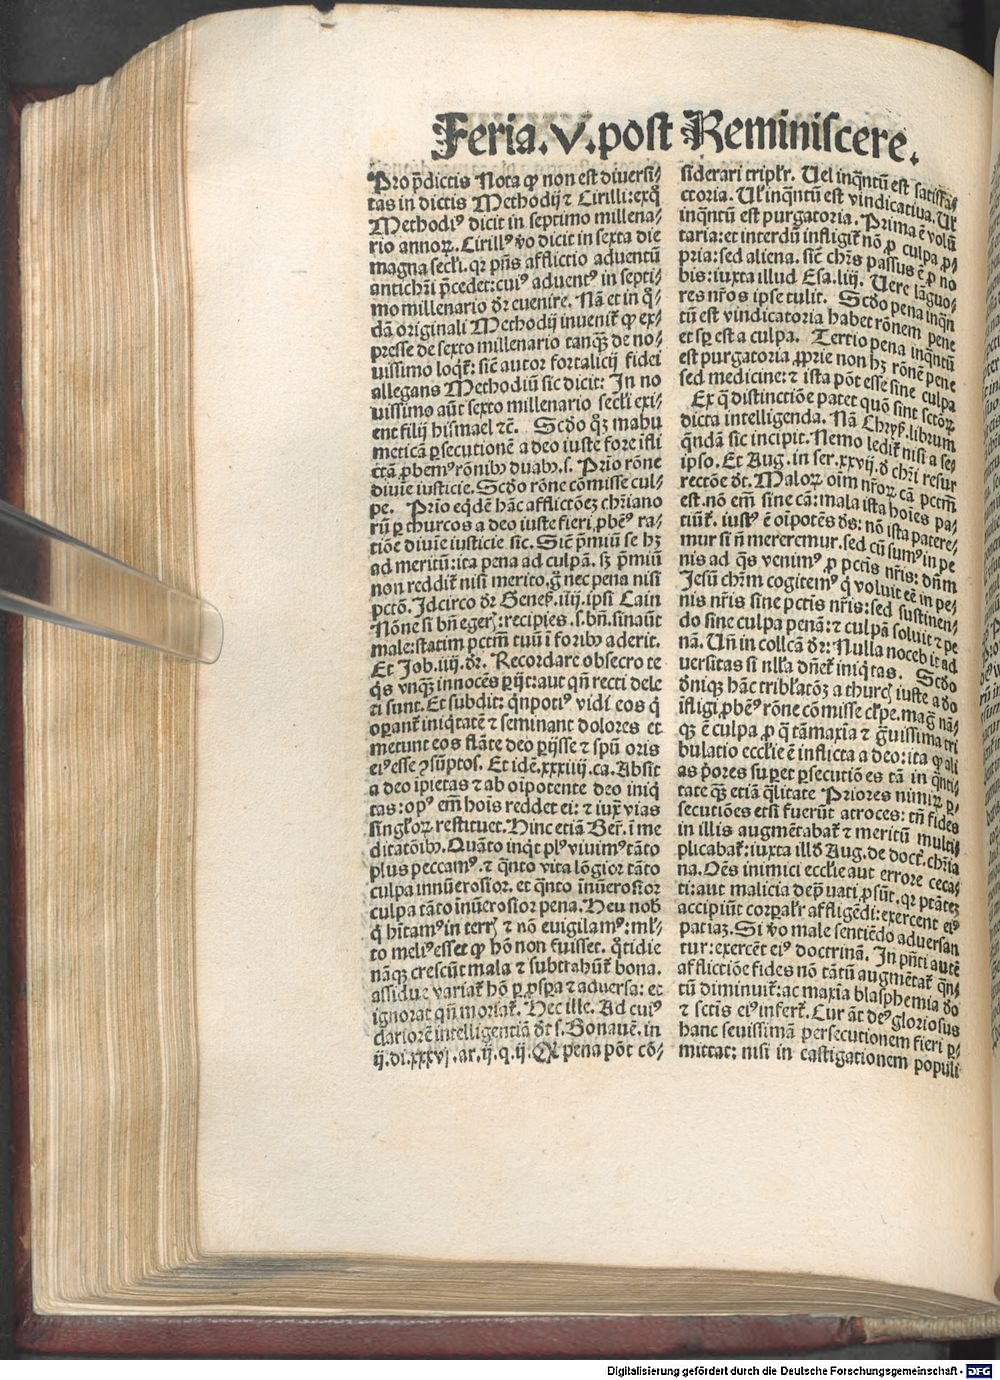 Feria.V.post Reminiscere.
Pro p̄dictis Nota ꝙ non est diuersi⸗
tas in dictis Methodij ⁊ Cirilli:exq̊
Methodiꝰ dicit in septimo millena⸗
rio annoꝝ.Cirillꝰ ṽo dicit in sexta die
magna secl̓i.qꝛ pñs afflictio aduentū
antichr̄i p̄cedet:cuiꝰ aduentꝰ in septi⸗
mo millenario dr̄ euenire. Nā et in q̊⸗
dā originali Methodij inuenit̓ ꝙ ex⸗
presse de sexto millenario tanqꝫ de no⸗
uissimo loqt̓: sic̄ autor fortalicij fidei
allegans Methodiū sic dicit: In no
uissimo aūt sexto millenario secl̓i exi⸗
ent filij hismael ⁊c̄. Scd̓o qꝫ mahu
meticā ꝑsecutionē a deo iuste fore ifli
ctā ꝓbemꝰ rōnibꝰ duabꝰ.s. Prīo rōne
diuīe iusticie.Scd̓o rōne cōmisse cul⸗
pe. Prīo eqd̓ē hāc afflictōeꝫ chr̄iano
rū ꝑ thurcos a deo iuste fieri ꝓbēꝰ ra⸗
tiōe diuīe iusticie sic. Sic̄ p̄miū se hꝫ
ad meritū:ita pena ad culpā. sꝫ p̄miū
non reddit̓ nisi merito.g̊ nec pena nisi
pctō. Idcirco dr̄ Geneꝭ.iiij.ipsi Cain
Nōne si bn̄ egerꝭ:recipies.s.bn̄.sinaūt
male:statim pctm̄ tuū ī foribꝰ aderit.
Et Job.iiij.dr̄. Recordare obsecro te
q̇s vnqꝫ innocēs ꝑijt:aut qn̄ recti dele
ti sunt.Et subdit: qn̄potiꝰ vidi eos q̇
oꝑant̓ iniq̇tatē ⁊ seminant dolores et
metunt eos flāte deo ꝑijsse ⁊ spū oris
eiꝰ esse ↄsūptos. Et idē.xxxiiij.ca.Absit
a deo īpietas ⁊ ab oīpotente deo iniq̇
tas:opꝰ em̄ hoīs reddet ei: ⁊ iux̄ vias
singl̓oꝝ restituet.Hinc etiā Ber. ī me
ditatōibꝰ.Quāto inq̇t plꝰ viuimꝰtāto
plus peccamꝰ.⁊ qn̄to vita lōgior tāto
culpa innūerosior. et qn̄to īnūerosior
culpa tāto īnūerosior pena.Heu nobꝭ
q̇ hītamꝰin terrꝭ ⁊ nō euigilamꝰ:ml̓⸗
to meliꝰesset ꝙ hō non fuisset. q̊tidie
nāqꝫ crescūt mala ⁊ subtrahūt̓ bona.
assidue variat̓ hō ꝑ ꝓspa ⁊ aduersa: et
ignorat qn̄ moriat̓. Hec ille. Ad cuiꝰ
clariorē intelligentiā dt̄ s.Bonauē.in
ij.di.xxxvj.ar.ij.q.ij. pena pōt cō⸗
siderari tripl̓r. Uel inq̇ntū est satisfa⸗
ctoria. Ul̓ inq̇ntū est vindicatiua. Ul̓
inq̇ntū est purgatoria. Prima ē volū
taria:et interdū infligit̓ nō ꝓ culpa ꝓ⸗
pria:sed aliena. sic̄ chr̄s passus ē ꝓ no
bis:iuxta illud Esa.liij. Uere lāguo⸗
res nr̄os ipse tulit. Scd̓o pena inqn̄
tū est vindicatoria habet rōnem pene
et sꝑ est a culpa. Tertio pena inq̇ntū
est purgatoria ꝓprie non hꝫ rōnē pene
sed medicine:⁊ ista pōt esse sine culpa
Ex q̊ distinctiōe patet quō sint sctōꝝ
dicta intelligenda. Nā Chryꝭ.librum
qn̄dā sic incipit.Nemo ledit̓ nisi a se
ipso. Et Aug.in ser.xxvij.d̓ chr̄i resur
rectōe dt̄. Maloꝝ oīm nr̄oꝝ cā pctm̄
est.nō em̄ sine cā:mala ista hoīes pa⸗
tiūt̓. iustꝰ ē oīpotēs ds̄: nō ista patere⸗
mur si n̄ mereremur.sed cū sumꝰ in pe
nis ad q̄s venimꝰ ꝓ pctis nr̄is: dn̄m
Jesū chr̄m cogitemꝰ q̇ voluit eē in pe⸗
nis nr̄is sine pctis nr̄is:sed sustinen⸗
do sine culpa penā:⁊ culpā soluit ⁊ pe
nā. Un̄ in collcā dr̄: Nulla nocebit ad
uersitas si nll̓a dn̄et̓ iniq̇tas. Scd̓o
d̓niqꝫ hāc tribl̓atōꝫ a thurcꝭ iuste a d̓o
īfligi ꝓbēꝰ rōne cōmisse cl̓pe.maḡ nā⸗
qꝫ ē culpa ꝓ q̄ tāmaxīa ⁊ g̊uissima tri
bulatio eccl̓ie ē inflicta a deo:ita ꝙ ali
as p̓ores suꝑet ꝑsecutiōes tā in q̄nti⸗
tate qꝫ etiā q̄litate Priores nimiꝝ ꝑ⸗
secutiōes etsi fuerūt atroces: tn̄ fides
in illis augmētabat̓ ⁊ meritū multi⸗
plicabat̓:iuxta illd̓ Aug.de doct̓. chr̄ia
na.Oēs inimici eccl̓ie aut errore ceca⸗
ti:aut malicia dep̄uati ꝓsūt. qꝛ ptāteꝫ
accipiūt corꝑal̓r affligēdi:exercent eiꝰ
patiaꝫ.Si ṽo male sentiēdo aduersan
tur:exercēt eiꝰ doctrinā. In pn̄ti autē
afflictiōe fides nō tātū augmētat̓ qn̄⸗
tū diminuit̓:ac maxīa blasphemia d̓o
⁊ sctīs eiꝰ infert̓. Cur āt deꝰ gloriosus
hanc seuissimā persecutionem fieri ꝑ⸗
mittat: nisi in castigationem populi
Digitalisierung gefördert durch die Deutsche Forschungsgemeinschaft - DFG